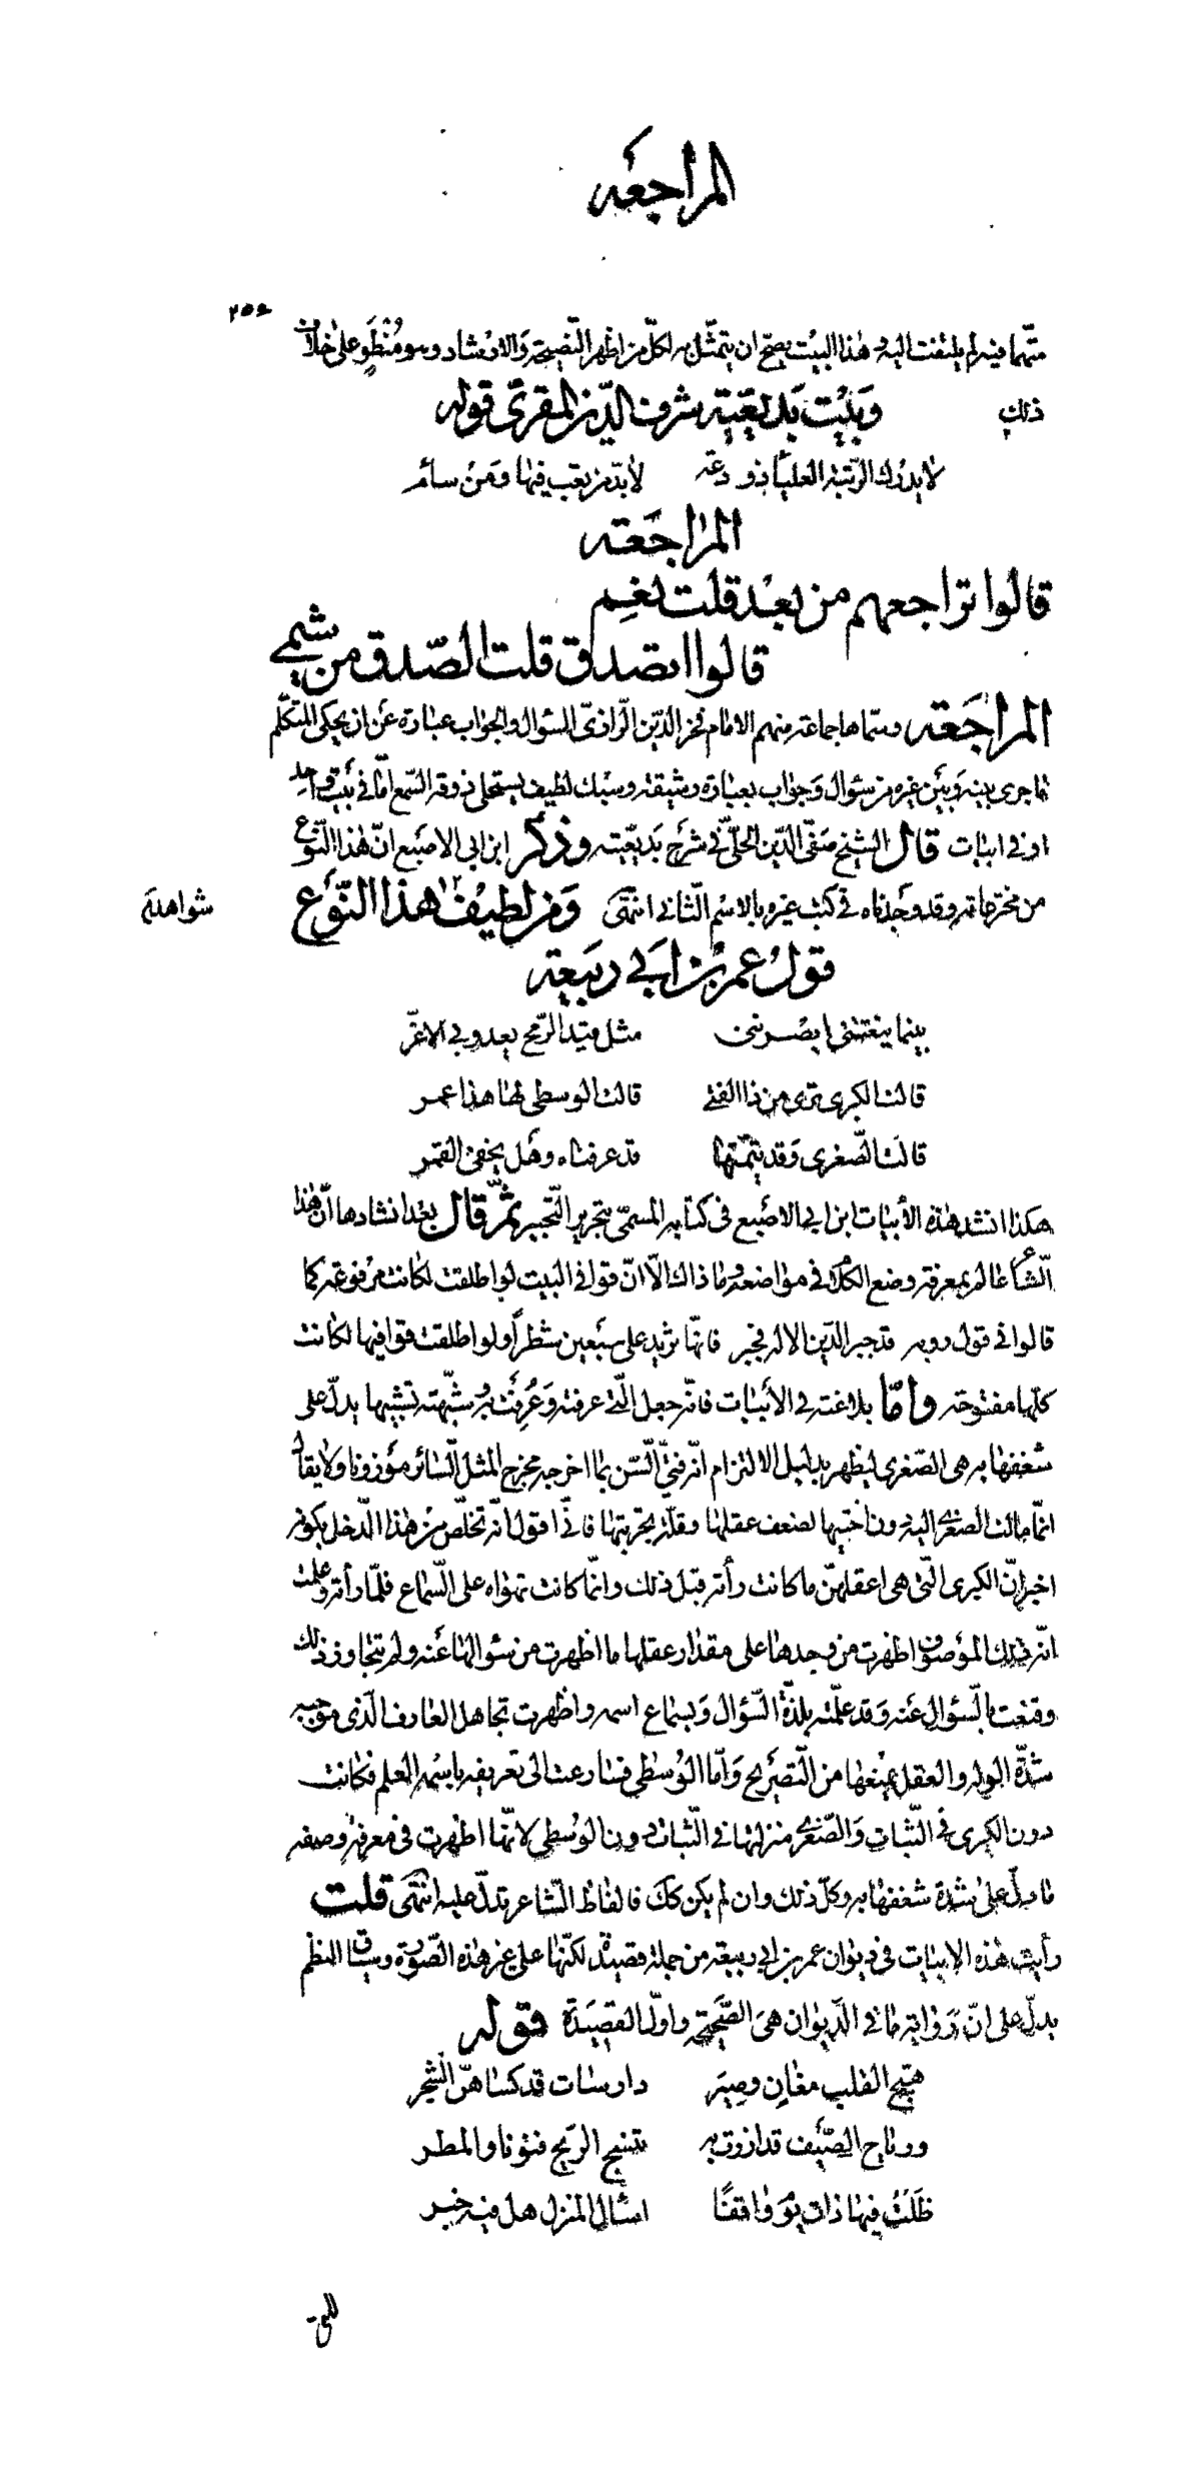 المراجعه
٢٥٤
متّهما فيه لم يلتفت اليه وهذا البيت يصحّ ان يتمثّل به لكلّ من اظهر النّصيحة والارشاد وهو مُنْطَوٍ على خلاف
ذلك وبيت بديعيّة شرف الدّين المقرى قوله
لا يدرك الرّتبة العلياء ذو دعة لا بدّ من تعب فيها ومن سأم
المراجعة
قالوا تراجعهم من بعد قلت نعم
قالوا اتصدق قلت الصّدق من شيمي
المراجعة وسمّاها جماعة منهم الامام فخر الدّين الرّازىّ السؤال والجواب عبارة عن ان يحكى المتكلّم
ما جرى بينه وبين غيره من سؤال وجواب بعبارة رشيقة وسبك لطيف يستحلى ذوقه السّمع امّا فى بيت واحد
او فى ابيات قال الشيخ صفىّ الدّين الحلّىّ فى شرح بديعيّته وذكر ابن ابى الاصبع انّ هذا النّوع
من مخترعاته وقد وجدناه فى كتب غيره بالاسم الثّانى انتهى ومن لطيف هذا النّوع شواهده
قول عمر بن ابى ربيعة
بينما ينعتننى ابصرننى مثل قيد الرّمح يعدو بى الاغرّ
قالت الكبرى ترى من ذا الفتى قالت الوسطى لها هذا عمر
قالت الصّغرى وقد تيّمتها قد عرفناه وهل يخفى القمر
هكذا انشد هذه الأبيات ابن ابى الاصبع فى كتابه المسمّى بتحرير التّحبير ثمّ قال بعد انشادها انّ هذا
الشّاعر عالم بمعرفة وضع الكلام فى مواضعه وما ذاك الّا انّ قوافى البيت لو اطلقت لكانت مرفوعة كما
قالوا فى قول روبه قد جبر الدّين الاله فجبر فانّها تزيد على سبعين شطراً ولو اطلقت قوافيها لكانت
كلّها مفتوحة وامّا بلاغته فى الأبيات فانّه جعل الّتى عرفته وعُرِفَت به وشبّهته تشبيها يدلّ على
شغفها به هى الصّغرى ليظهر بدليل الالتزام انّه فتىّ السّن بما اخرجه مخرج المثل السّائر موزونا ولا يقال
انّما مالت الصغرى اليه دون اختيها لضعف عقلها وقلّة تجربتها فانّى اقول انّه تخلّص من هذا الدّخل بكونه
اخبر انّ الكبرى الّتى هى اعقلهنّ ما كانت رأته قبل ذلك وانّما كانت تهواه على السّماع فلمّا رأته وعلمت
انّه ذلك الموصوف اظهرت من وجدها على مقدار عقلها ما اظهرت من سؤالها عنه ولم تتجاوز ذلك
وقنعت بالسّؤال عنه وقد علمته بلذّة السّؤال وبسماع اسمه واظهرت تجاهل العارف الّذى موجبه
شدّة الوله والعقل يمنعها من التّصريح وامّا الوسطى فسارعت الى تعريفه باسمه العلم فكانت
دون الكبرى فى الثّبات والصّغرى منزلتها فى الثّبات دون الوسطى لانّها اظهرت فى معرفة وصفه
ما دلّ على شدة شغفها به وكلّ ذلك وان لم يكن كك فالفاظ الشّاعر تدلّ عليه انتهى قلت
رأيت هذه الابيات فى ديوان عمر بن ابى ربيعة من جملة قصيدة لكنّها على غير هذه الصّورة وسياق النظم
يدلّ على انّ رواية ما فى الدّيوان هى الصّحيحة واوّل القصيدة قوله
هيّج القلب مغانٍ وصِيَر دارسات قد كساهنّ الشجر
ورياح الصّيف قد ازرت به تنسج الرّيح فنونا والمطر
ظَلْتُ فيها ذات يوم واقفًا اسئال المنزل هل فيه خبر
للتى